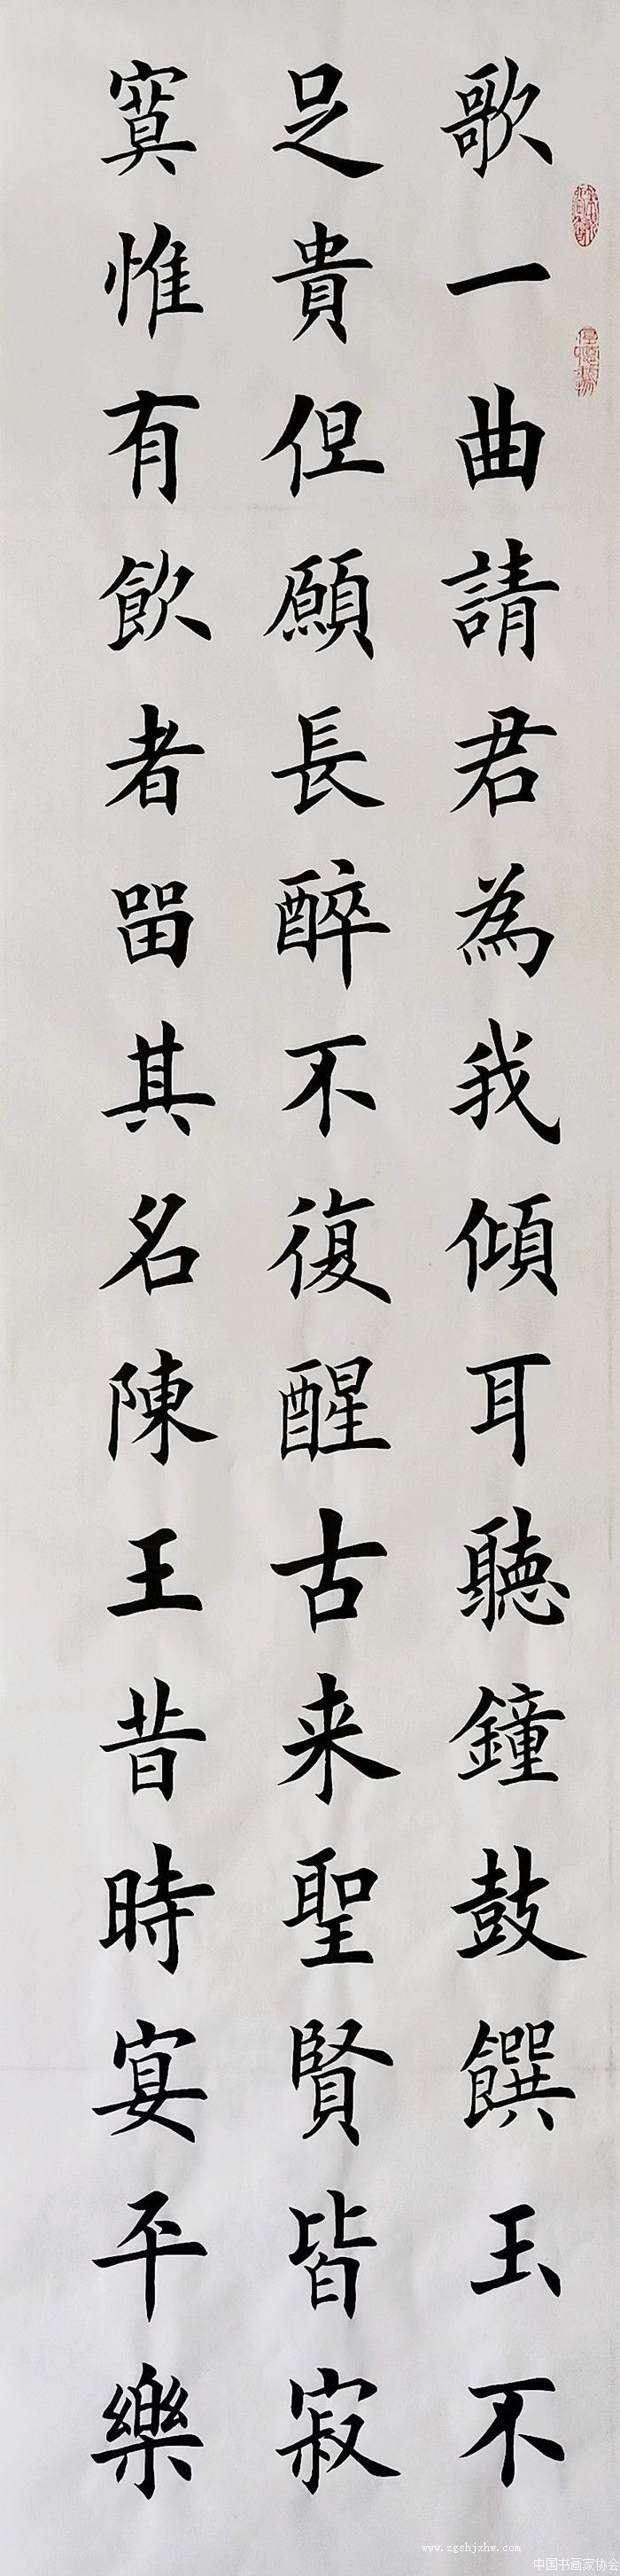 歌一曲請君為我傾耳聽鐘鼓饌玉不
足貴但願長醉不復醒古来聖賢皆寂
寞惟有飲者留其名陳王昔時宴平樂
www.zgshjxhw.com
中国书画家协会